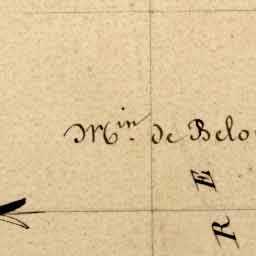 Min. de Belo
R E